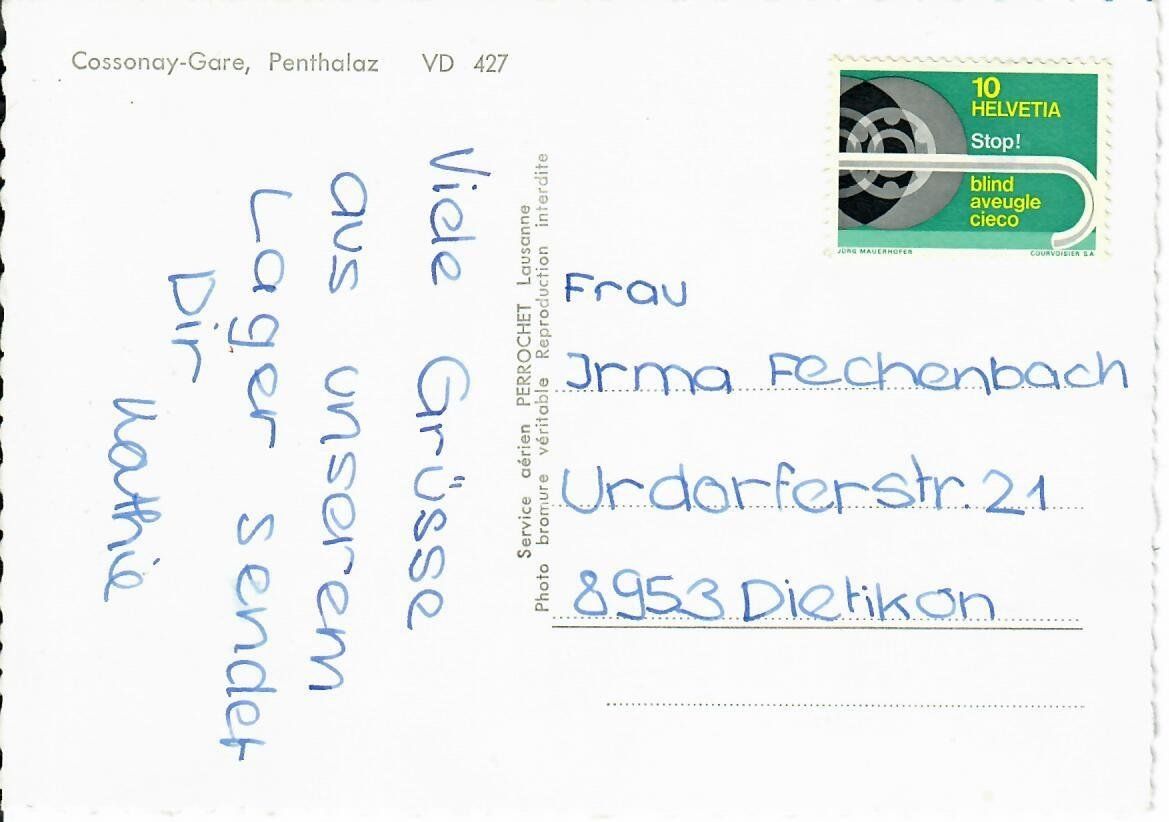 Cossonay-Gare, Penthalaz VD 427
10
HELVETIA
Stop!
blind
aveugle
cieco
JÖRG MAUERHOFER COURVOISIER S.A
Viele Grüsse
aus unserem
Lager sendet
Dir
Kathie
Service aérien PERROCHET Lausanne
Photo bromure véritable Reproduction interdite
Frau
Irma Fechenbach
Urdorferstr. 21
8953 Dietikon